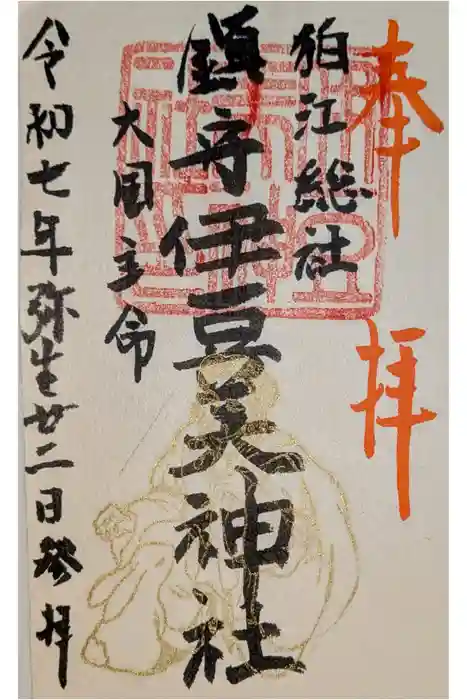 奉拝
狛江総社
鎮守伊豆美神社
大国主命
令和七年弥生廿二日参拝